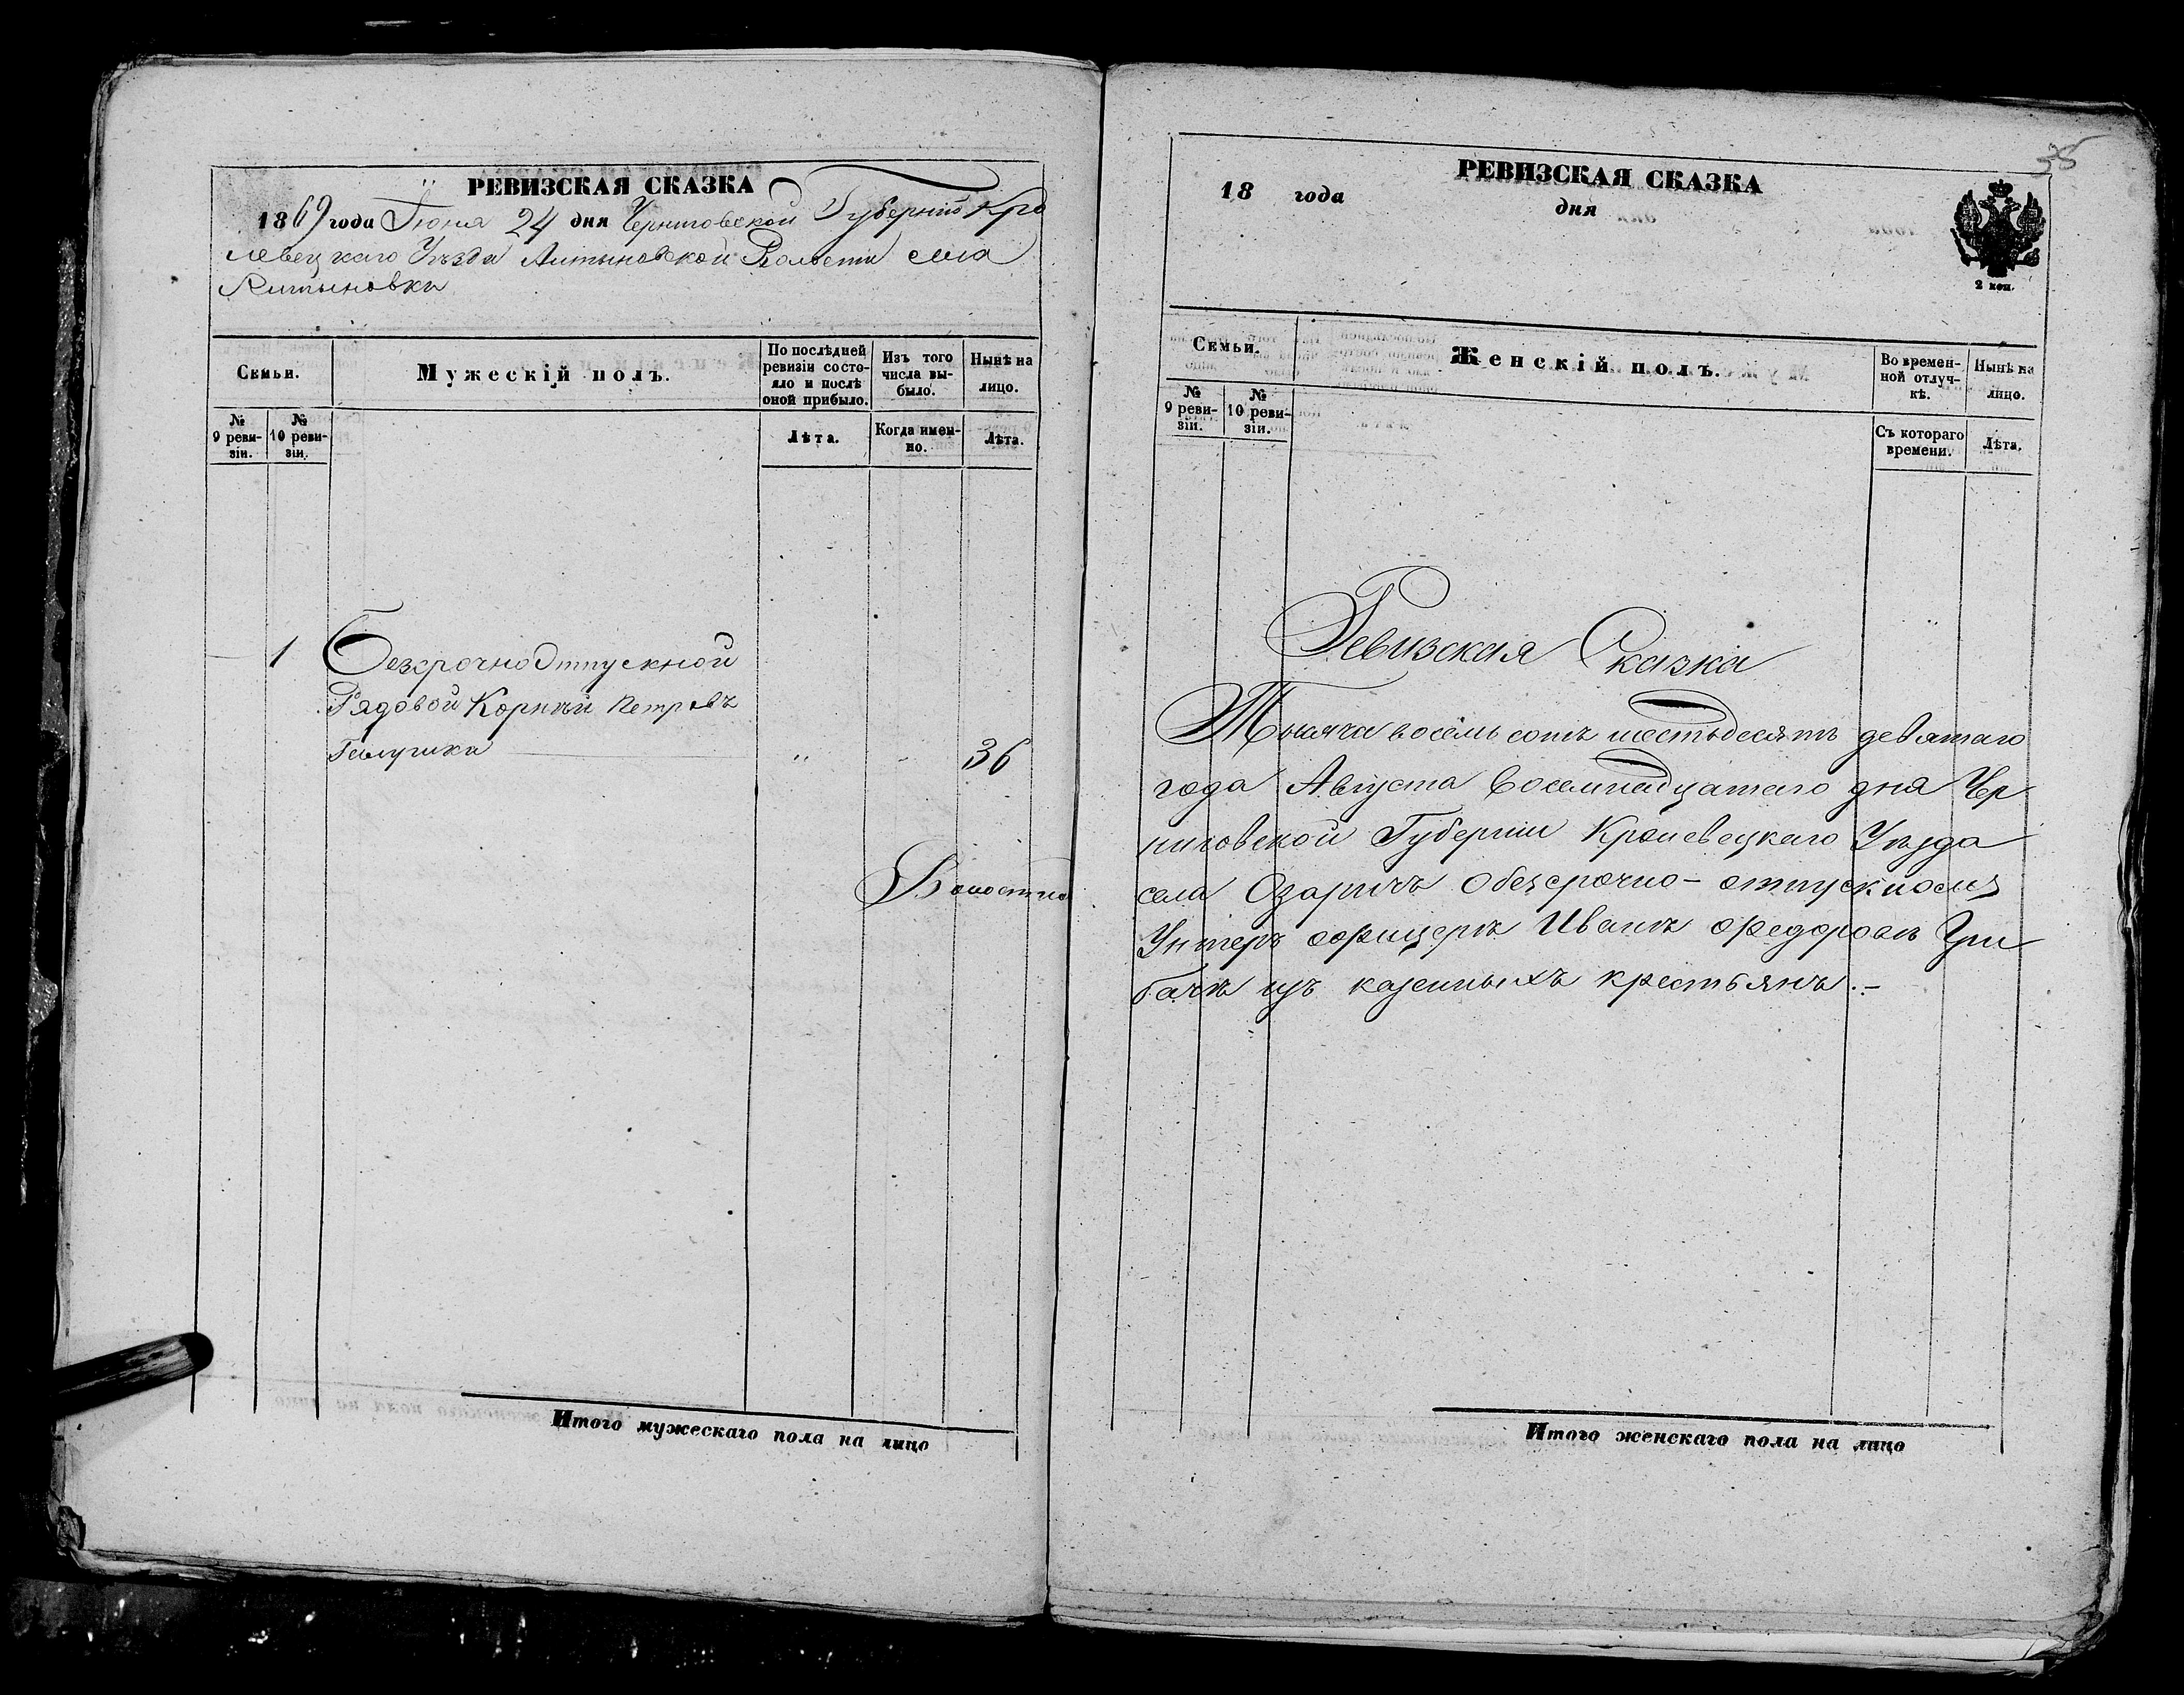 РЕВИЗСКАЯ СКАЗКА
1869 года Іюня 24 дня Черниговской Губерніи Кро
левецкаго Уѣзда Алтыновской Волости села
Алтыновки
Семьи.
Мужескій полъ.
По послѣдней
ревизіи состо-
яло и послѣ
оной прибыло.
Изъ того
числа вы-
было.
Нынѣ на
лицо.
№
9 реви-
зіи.
№
10 реви-
зіи.
Лѣта.
Когда имен-
но.
Лѣта.
1 Безсрочно Отпускной
Рядовой Корнѣй Петровъ
36
Волостно
Итого мужескаго пола на лицо
35
РЕВИЗСКАЯ СКАЗКА
18 года дня
2 коп.
Семьи.
Женскій полъ.
Во времен-
ной отлуч-
кѣ.
Нынѣ на
лицо.
№
9 реви-
зіи.
№
10 реви-
зіи.
Съ котораго
времени.
Лѣта.
Ревизская Сказка
Тысяча восемь сотъ шестьдесятъ девятаго
года Августа восемнадцатаго дня Чер
ниговской Губерніи Кролевецкаго Уѣзда
села Озаричъ о безсрочно-отпускномъ
Унтеръ офицерѣ Иванѣ Федоровѣ
изъ казенныхъ крестьянъ.-
Итого женскаго пола на лицо